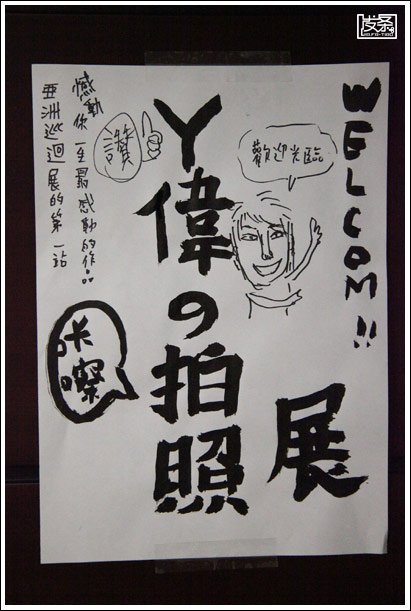 发条
WELCOM!!
歡迎光臨
Y偉の拍照
展
讚
憾動你一生最感動的作品
亞洲巡迴展的第一站
咔嚓